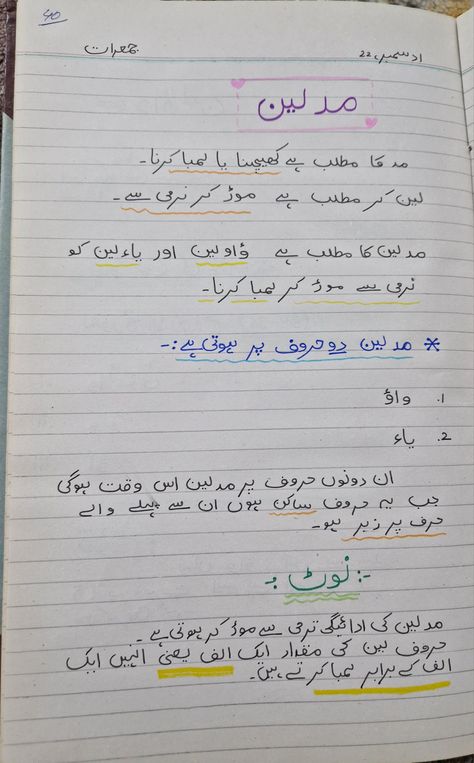 40
جمعرات
1 دسمبر، 22
مد لین
مد کا مطلب ہے کھینچنا یا لمبا کرنا۔
لین کر مطلب ہے موڑ کر نرمی سے۔
مد لین کا مطلب ہے واو لین اور یاء لین کو
نرمی سے موڑ کر لمبا کرنا۔
* مد لین دو حروف پر ہوتی ہے :-
1. واؤ
2. یاء
ان دونوں حروف پر مد لین اس وقت ہوگی
جب یہ حروف ساکن ہوں ان سے پہلے والے
حرف پر زبر ہو۔
:- نوٹ :-
مد لین کی ادائیگی نرمی سے موڑ کر ہوتی ہے۔
حروف لین کی مقدار ایک الف یعنی انہیں ایک
الف کے برابر لمبا کرتے ہیں۔